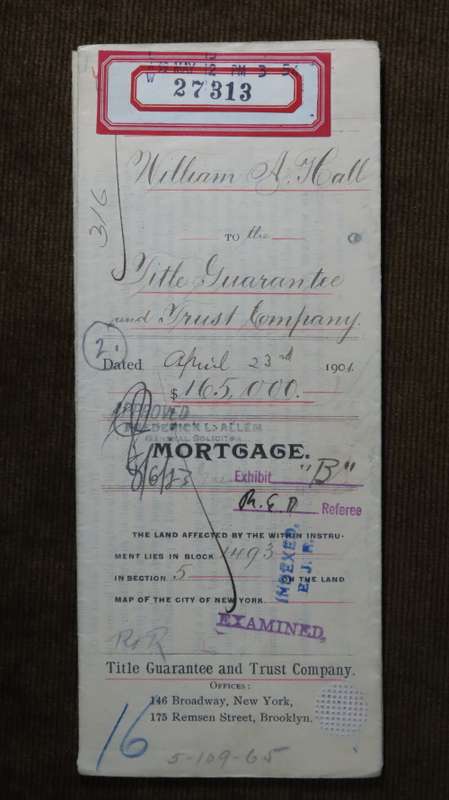 MAY 12 PM 3
27313
William A. Hall
316
TO the
Title Guarantee
and Trust Company.
2.
Dated April 23rd 1901.
$ 165,000.
APPROVED
FREDERICK L. ALLEN
GENERAL SOLICITOR
MORTGAGE.
Exhibit "B"
Referee
THE LAND AFFECTED BY THE WITHIN INSTRU-
MENT LIES IN BLOCK 1493
IN SECTION 5 ON THE LAND
MAP OF THE CITY OF NEW YORK.
INDEXED.
E. J. R.
EXAMINED,
R & R
Title Guarantee and Trust Company.
OFFICES:
146 Broadway, New York,
175 Remsen Street, Brooklyn.
16
5-109-65